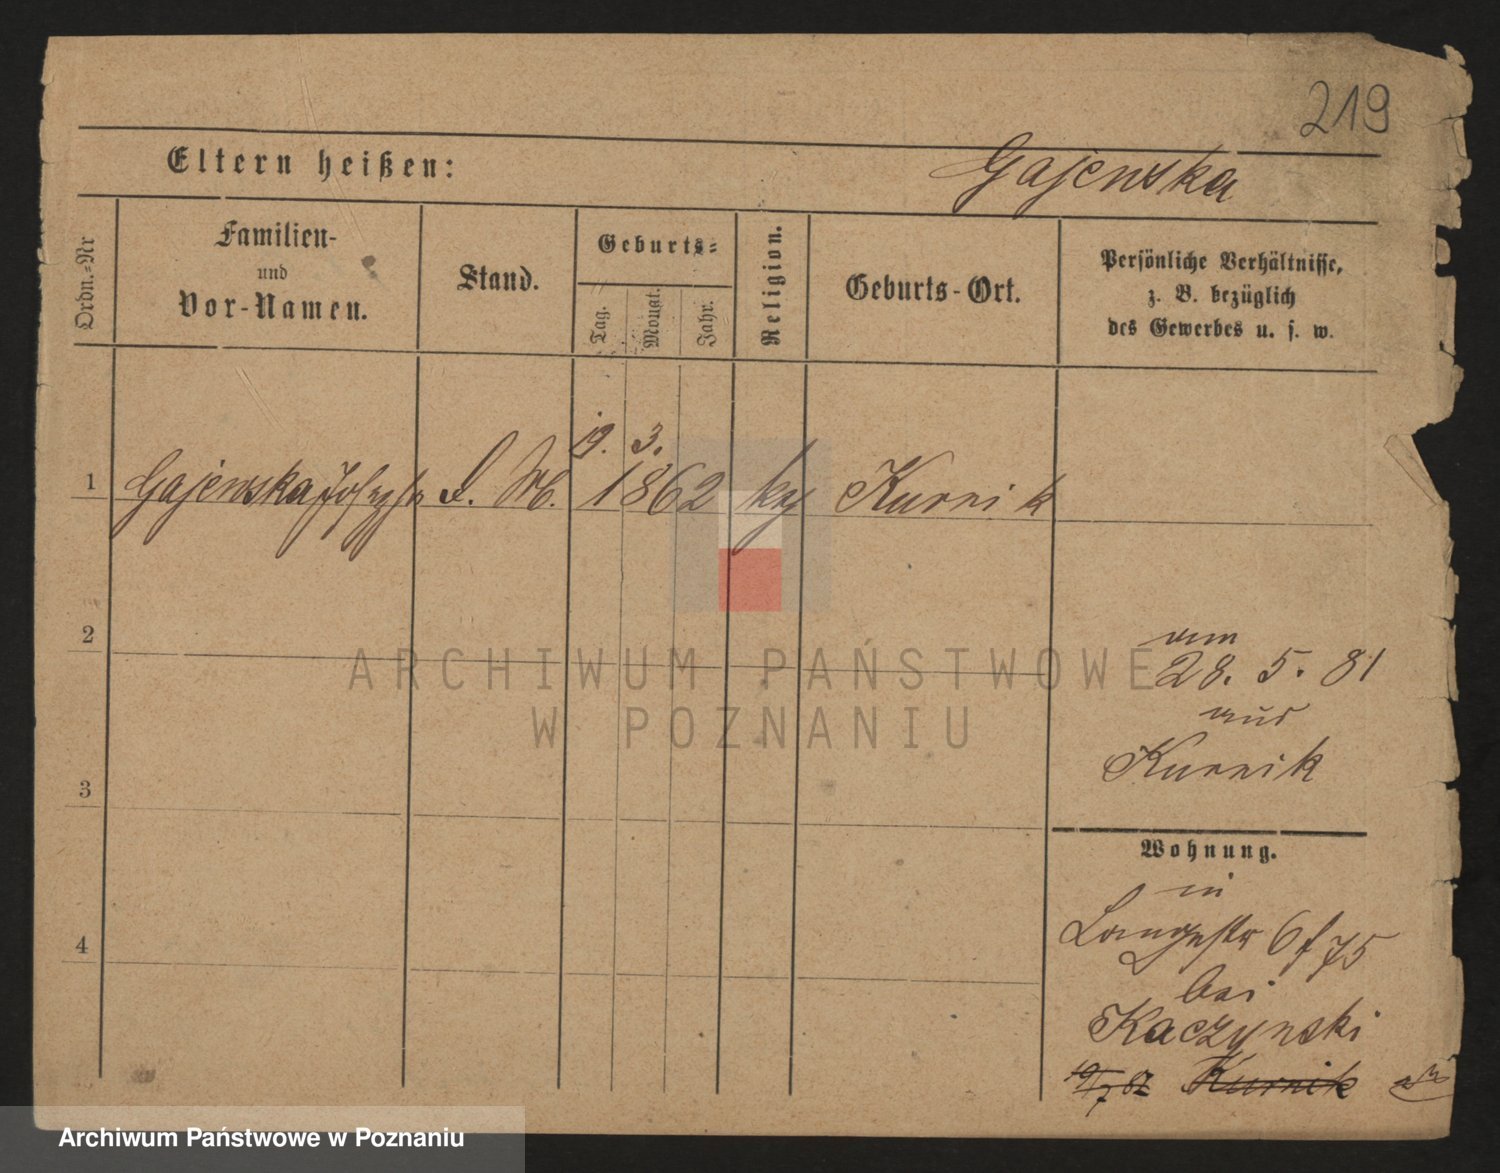 219
Eltern heißen:
Gajewska
Ordn.=Nr
Familien-
und
Vor-Namen.
Stand.
Geburts=
Tag.
Monat.
Jahr.
Religion.
Geburts-Ort.
Persönliche Verhältnisse,
z. B. bezüglich
des Gewerbes u. s. w.
19. 3.
1 Gajewska D. M. 1862 Kurnik
2
am
28. 5. 81
aus
Kurnik
3
Wohnung.
in
Langestr 6 f 75
4
bei
Kaczynski
19/7 81 Kurnik
ARCHIWUM PAŃSTWOWE
W POZNANIU
Archiwum Państwowe w Poznaniu